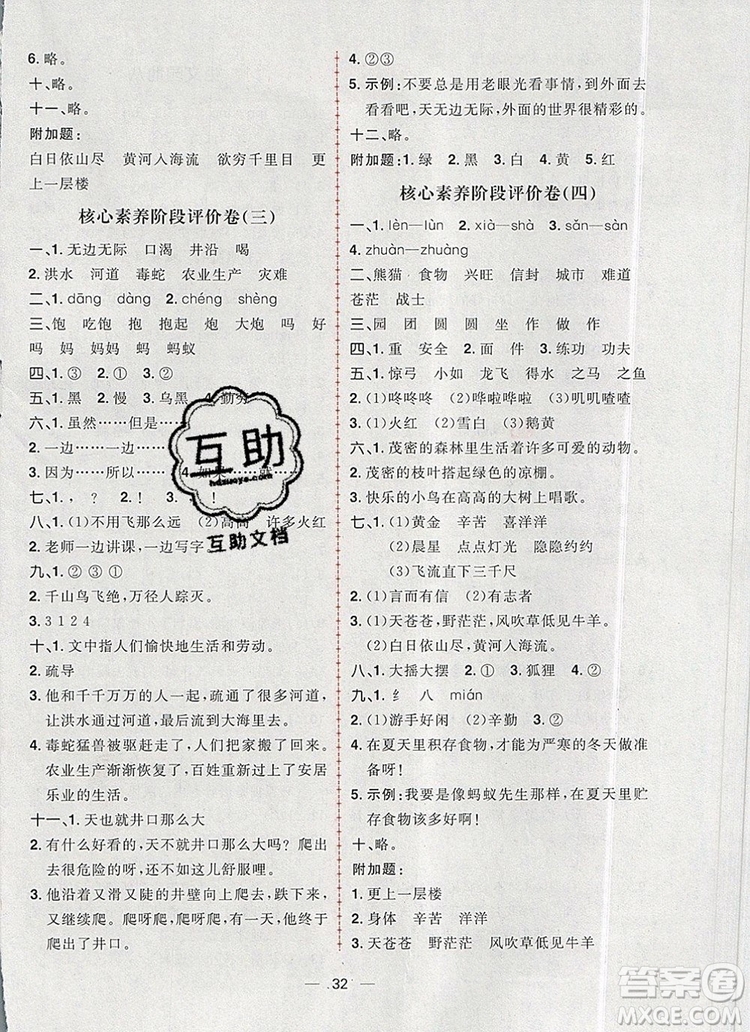 6. 略。
十、略。
十一、略。
附加题:
白日依山尽 黄河入海流 欲穷千里目 更
上一层楼
核心素养阶段评价卷(三)
一、1. 无边无际 口渴 井沿 喝
2. 洪水 河道 毒蛇 农业生产 灾难
二、1. dāng dàng 2. chéng shèng
三、饱 吃饱 抱 抱起 炮 大炮 吗 好
吗 妈 妈妈 蚂 蚂蚁
四、1. ①③ 2. ① 3. ②
五、1. 黑 2. 慢 3. 乌黑 4. 勤劳
六、1. 虽然……但是……
2. 一边……一边……
3. 因为……所以…… 4. 如果……就……
七、1. , ? 2. ! 3. , !
八、1. (1)不用飞那么远 (2)高高 许多 火红
2. 老师一边讲课,一边写字
九、1. ② 3. ①
2. 千山鸟飞绝,万径人踪灭。
3. 3 1 2 4
十、1. 文中指人们愉快地生活和劳动。
2. 疏导
3. 他和千千万万的人一起,疏通了很多河道,
让洪水通过河道,最后流到大海里去。
4. 毒蛇猛兽被驱赶走了,人们把家搬了回来。
农业生产渐渐恢复了,百姓们过上了安居
乐业的生活。
十一、1. 天也就井口那么大
2. 有什么好看的,天不就井口那么大吗?爬出
去很危险的呀!我还是在这儿舒服哩。
3. 他沿着又滑又陡的井壁向上爬,跌下来,就
又继续爬。爬呀爬,爬呀爬,有一天,他终于
爬出了井口。
4. ②③
5. 示例:不要总是用老眼光看事情,到外面去
看看吧,天无边无际,外面的世界很精彩的。
十二、略。
附加题:1. 绿 2. 黑 3. 白 4. 黄 5. 红
核心素养阶段评价卷(四)
一、1. lèn—lùn 2. xià—shà 3. sǎn—sàn
4. zhuàn—zhuàng
二、熊猫 食物 兴旺 信封 城市 难道
苍茫 战士
三、园 团 圆 圆 坐 作 做 作
四、1. 重 安全 2. 面 件 3. 练功 功夫
五、1. 惊弓 小如 龙飞 得水 之马 之鱼
2. (1)咚咚咚 (2)哗啦哗啦 (3)叽叽喳喳
3. (1)火红 (2)雪白 (3)鹅黄
六、1. 茂密的森林里生活着许多可爱的动物。
2. 茂密的枝叶搭起绿色的凉棚。
3. 快乐的小鸟在高高的大树上唱歌。
七、1. (1)黄金 辛苦 喜洋洋
(2)晨星 点点灯光 隐隐约约
(3)飞流直下三千尺
2. (1)言而有信 (2)有志者
3. (1)天苍苍,野茫茫,风吹草低见牛羊。
(2)白日依山尽,黄河入海流。
八、1. 大摇大摆 2. ① 3. 狐狸 4. ②
九、1. 纟 八 mián
2. (1)游手好闲 (2)辛勤
3. ②
4. 在夏天里积存食物,才能为严寒的冬天做准
备呀!
5. 示例:我要是像蚂蚁先生那样,在夏天里贮
存食物该多好呀!
十、略。
附加题:
1. 更上一层楼
2. 身体 辛苦 洋洋
3. 天苍苍 野茫茫 风吹草低见牛羊
32
互助
hdzuoye.com
互助文档
答案圈
MXQE.COM